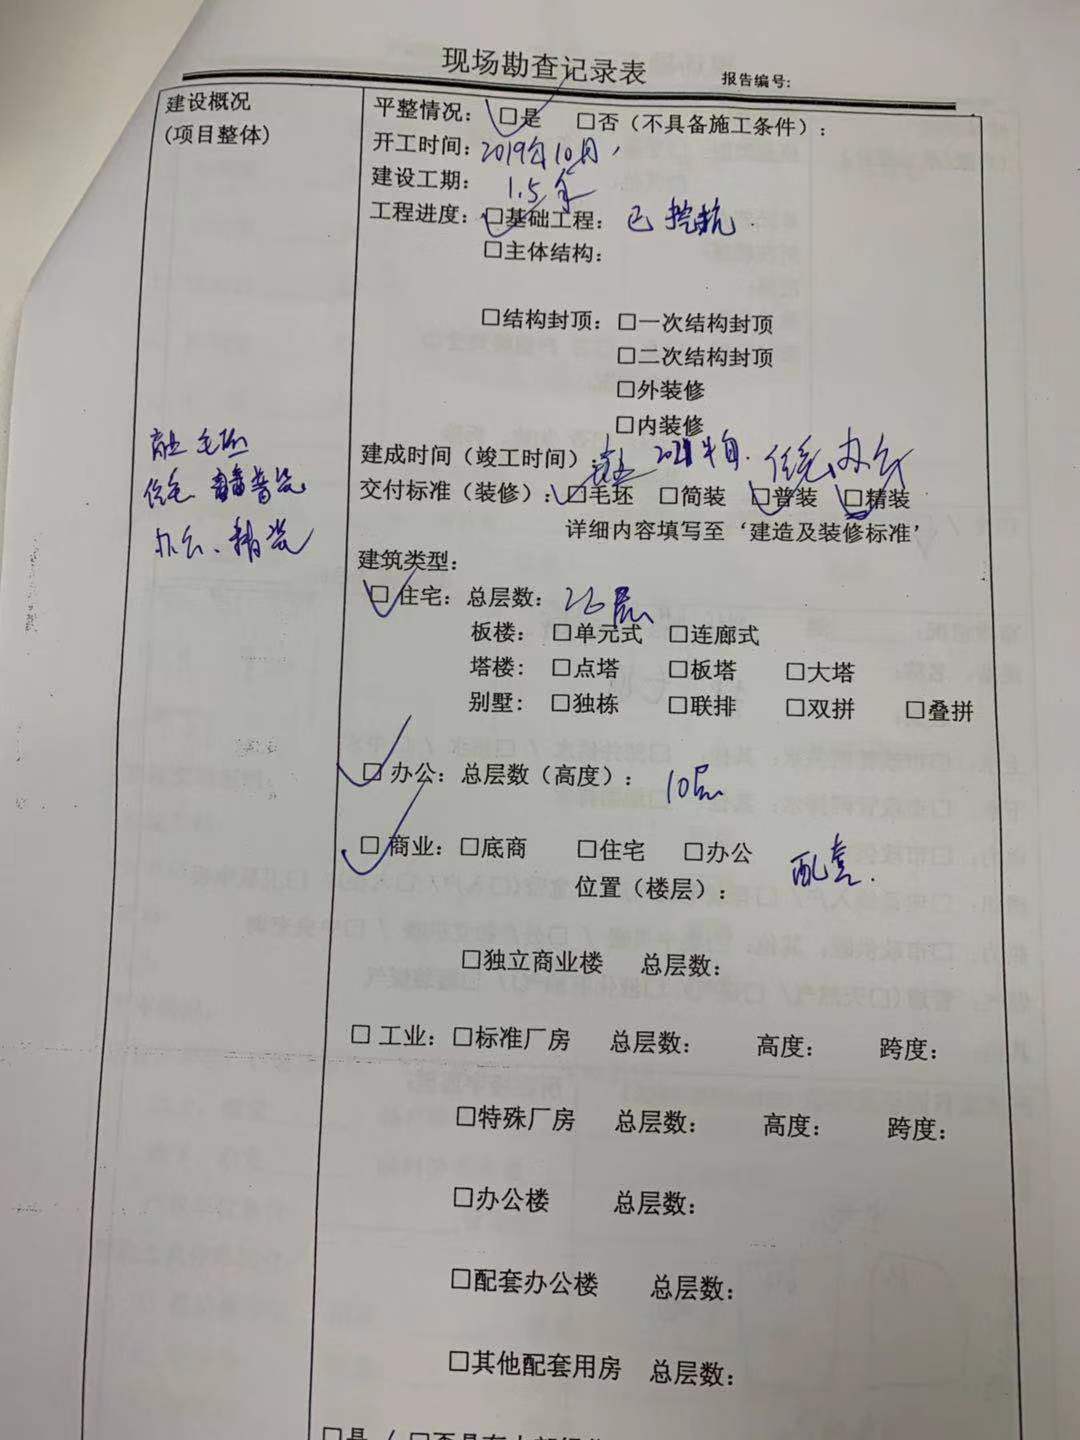 现场勘查记录表 报告编号:
建设概况
(项目整体)
平整情况: □是 □否(不具备施工条件):
开工时间: 2019年10月,
建设工期: 1.5年
工程进度: □基础工程: 已挖坑.
□主体结构:
□结构封顶: □一次结构封顶
□二次结构封顶
□外装修
□内装修
商业 毛坯
住宅 普瓷
办公、精瓷
建成时间(竣工时间): 商业 住宅、办公
交付标准(装修): □毛坯 □简装 □普装 □精装
详细内容填写至‘建造及装修标准’
建筑类型:
□ 住宅: 总层数: 26层
板楼: □单元式 □连廊式
塔楼: □点塔 □板塔 □大塔
别墅: □独栋 □联排 □双拼 □叠拼
□ 办公: 总层数(高度): 10层
□ 商业: □底商 □住宅 □办公 配套.
位置(楼层):
□独立商业楼 总层数:
□ 工业: □标准厂房 总层数: 高度: 跨度:
□特殊厂房 总层数: 高度: 跨度:
□办公楼 总层数:
□配套办公楼 总层数:
□其他配套用房 总层数: